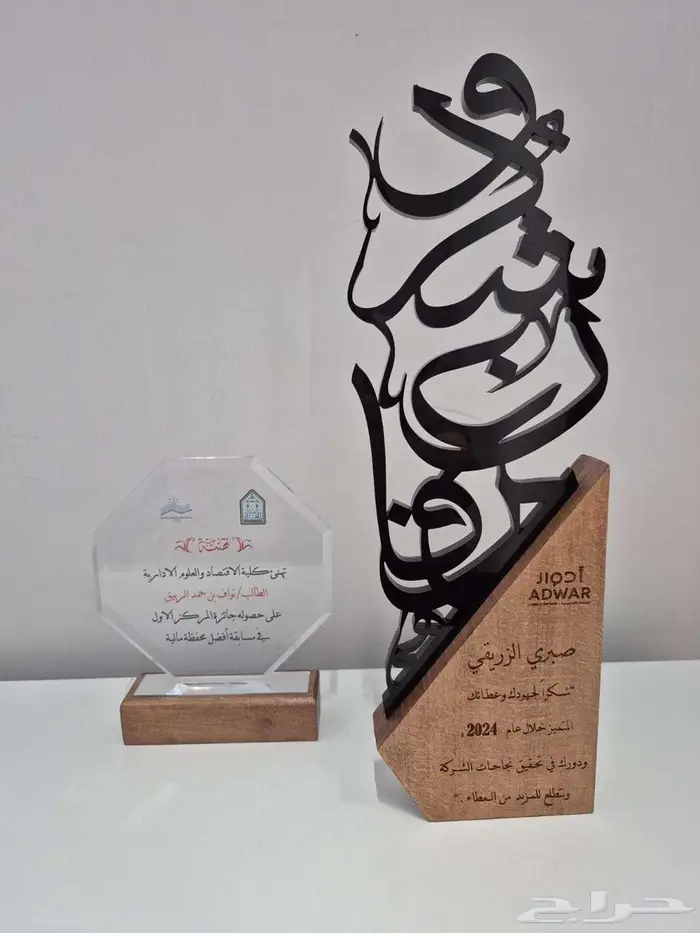 تهنئة
تهنئ كلية الاقتصاد والعلوم الادارية
الطالب/ نواف بن حمد الربيق
على حصوله جائزة المركز الاول
في مسابقة أفضل محفظة مالية
أدوار
ADWAR
صبري الزريقي
"شكراً لجهودك وعطائك
المتميز خلال عام 2024 ,
ودورك في تحقيق نجاحات الشركة
ونتطلع للمزيد من العطاء ."
حراج